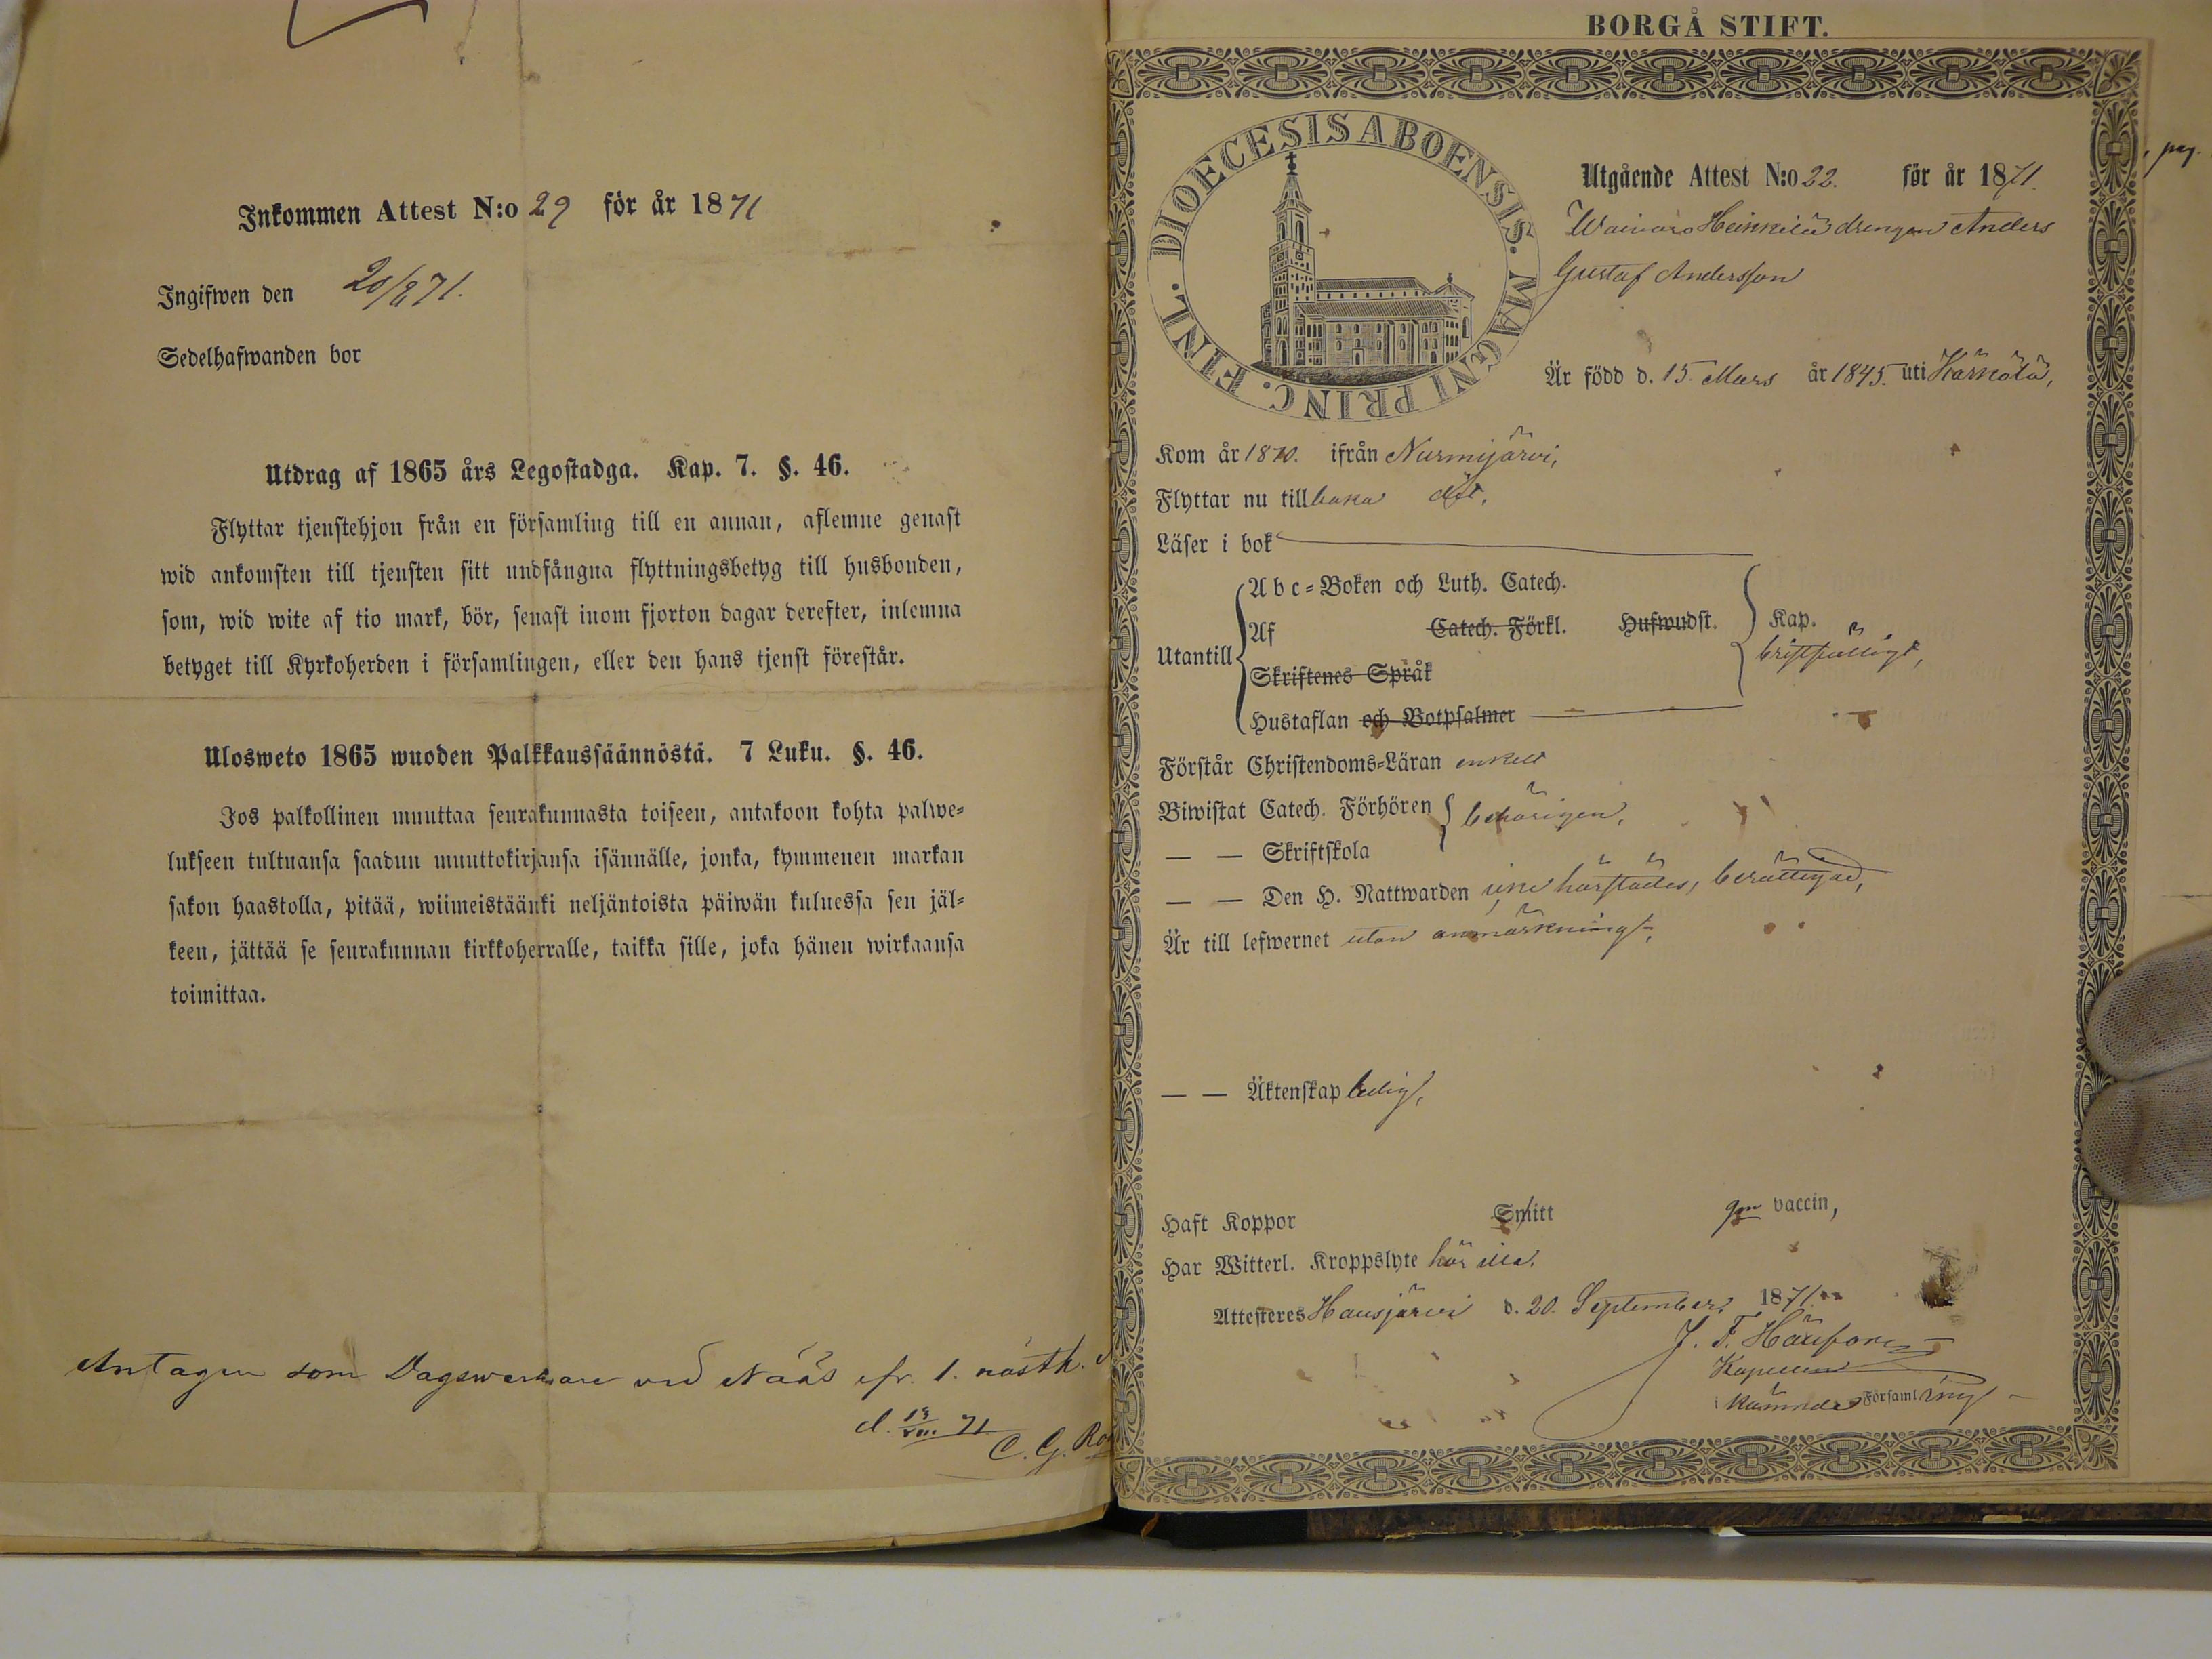 Inkommen Attest N:o 29 för år 1871
Ingifwen den 20/8 71.
Sedelhafwanden bor
Utdrag af 1865 års Legostadga. Kap. 7. §. 46.
Flyttar tjenstehjon från en församling till en annan, aflemne genast
wid ankomsten till tjensten sitt undfångna flyttningsbetyg till husbonden,
som, wid wite af tio mark, bör, senast inom fjorton dagar derefter, inlemna
betyget till Kyrkoherden i församlingen, eller den hans tjenst förestår.
Ulosweto 1865 wuoden Palkkaussäännöstä. 7 Luku. §. 46.
Jos palkollinen muuttaa seurakunnasta toiseen, antakoon kohta palwe-
lukseen tultuansa saadun muuttokirjansa isännälle, jonka, kymmenen markan
sakon haastolla, pitää, wiimeistäänki neljäntoista päiwän kuluessa sen jäl-
keen, jättää se seurakunnan kirkkoherralle, taikka sille, joka hänen wirkaansa
toimittaa.
Antagen som Dagswerkare vid Nääs fr. 1. nästk.
d. 19/VIII 71
C. G.
BORGÅ STIFT.
DIOECESIS ABOENSIS. MAGNI PRINC. FINL.
Utgående Attest N:o 22. för år 1871.
, pag.
Waiwars Heinkilä drengen Anders
Gustaf Andersson
Är född d. 15. Mars år 1845. uti Kärkölä,
Kom år 1870. ifrån Nurmijärvi,
Flyttar nu tillbaka dit.
Läser i bok
Utantill
Abc-Boken och Luth. Catech.
Af Catech. Förkl. Hufwudst. Kap.
bristfälligt,
Skriftenes Språk
Hustaflan och Botpsalmer
Förstår Christendoms-Läran enkelt
Biwistat Catech. Förhören behörigen,
— — Skriftskola
— — Den H. Nattwarden härstädes, berättigad,
Är till lefwernet utan anmärkning,
— — Äktenskap ledig,
Haft Koppor Smitt gm vaccin,
Har Witterl. Kroppslyte hör illa.
Attesteres Hausjärvi d. 20. September 1871.
J. F.
Kapellan
i Församling